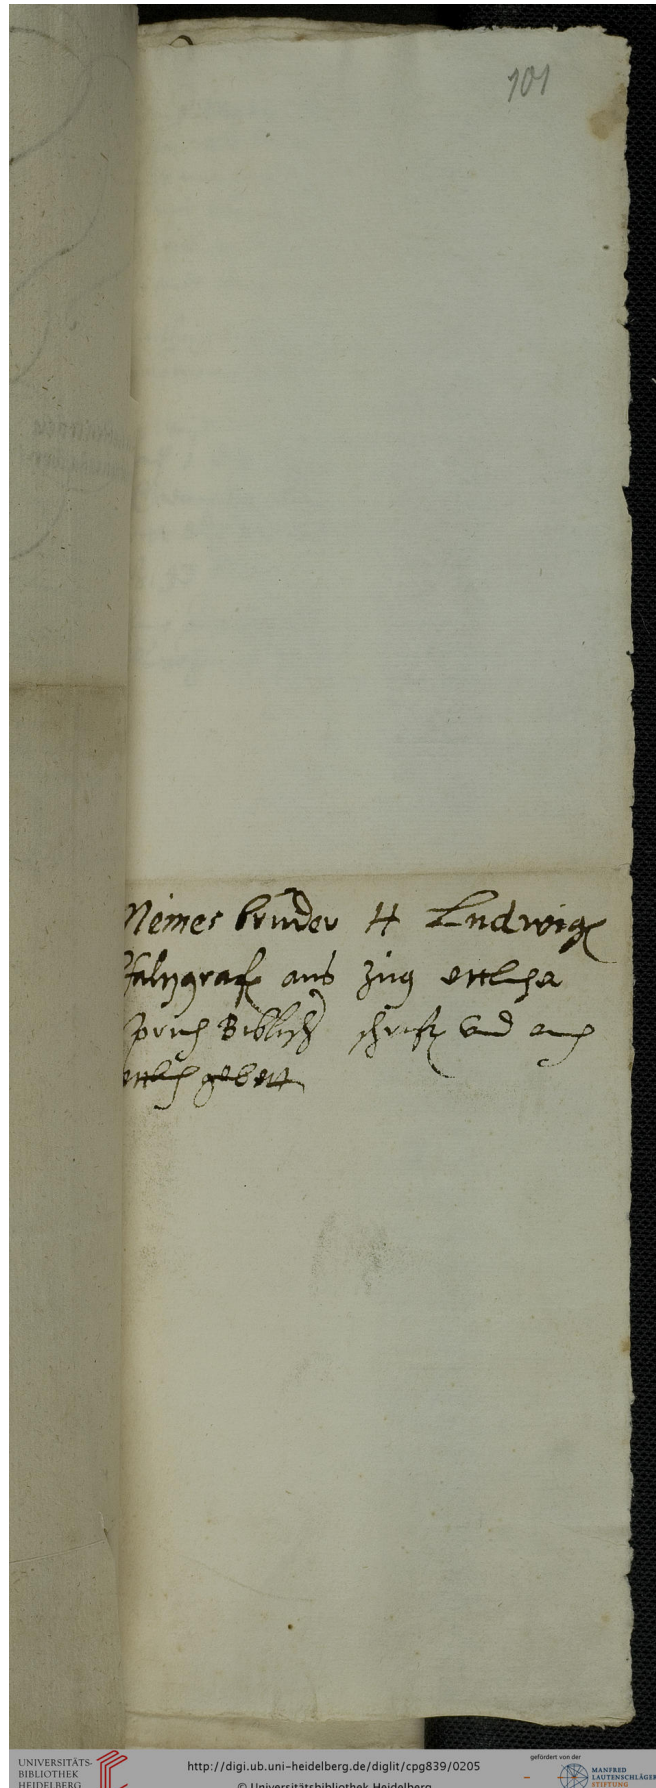 101
Meines bruder H Ludwigs
Pfaltzgraf aus zug ettlicher
spruch Biblisch schrift vnd auch
ettlich gebett
UNIVERSITÄTS-
BIBLIOTHEK
HEIDELBERG
http://digi.ub.uni-heidelberg.de/diglit/cpg839/0205
© Universitätsbibliothek Heidelberg
gefördert von der
MANFRED
LAUTENSCHLÄGER
STIFTUNG